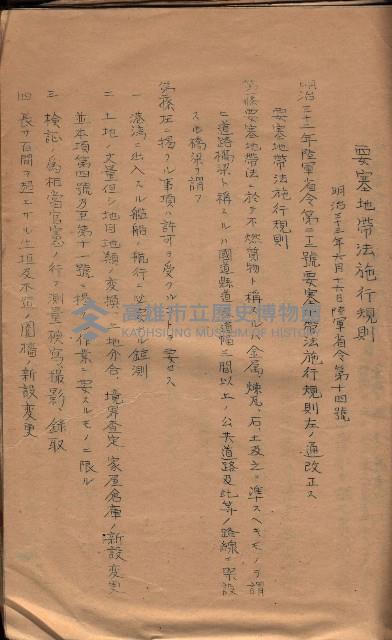 要塞地帶法施行規則
明治三十三年六月十六日陸軍省令第十四號
明治三十二年陸軍省令第二十二號要塞地帶法施行規則左ノ通改正ス
要塞地帶法施行規則
要塞地帶法ニ於テ不燃質物ト稱スルハ金屬、煉瓦、石、土及之ニ準スヘキモノヲ謂
ヒ道路橋梁ト稱スルハ國道縣道
幅三間以上ノ公共道路及此等ノ路線ニ架設
スル橋梁ヲ謂フ
左ニ揭クル事項ハ許可ヲ受クル
要セス
一 港灣ニ出入スル艦船ノ航行ニ必
錘測
二 土地ノ丈量但シ地目地類ノ變換
地分合、境界査定、家屋倉庫ノ新設變更
並本項第四號乃至第十
號ニ揭
作業ニ要スルモノニ限ル
三 檢証ノ爲相當官憲ノ行フ測量模寫撮影錄取
四 長サ百間ヲ超エサル生垣及木竹ノ圍牆ノ新設變更
高雄市立歷史博物館
KAOHSIUNG MUSEUM OF HISTORY